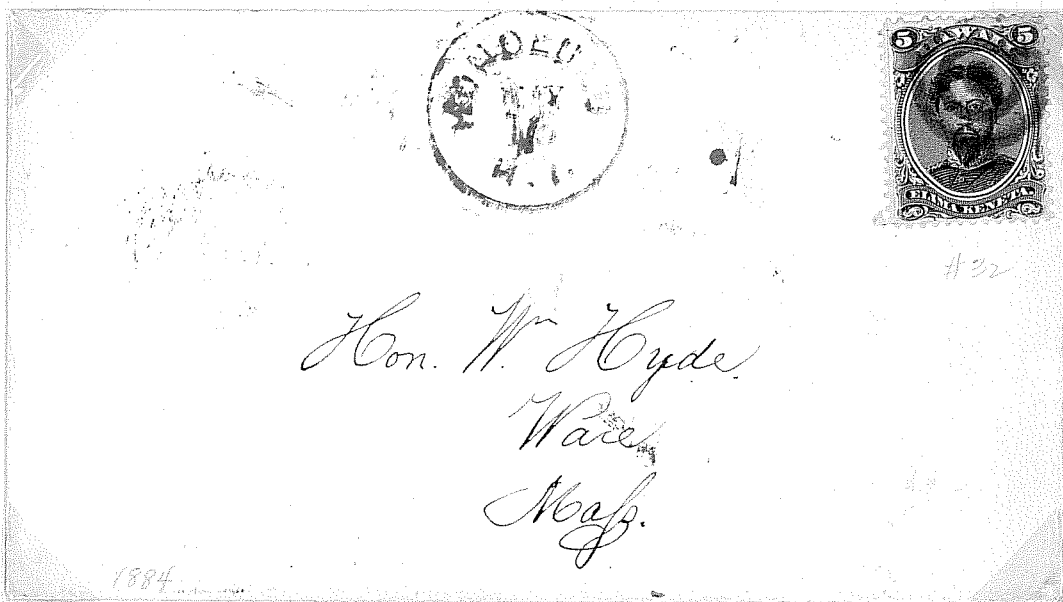 HONOLULU
H.I.
5 HAWAII 5
ELIMA KENETA.
#32
Hon. Wm Hyde.
Ware
Mass.
1884